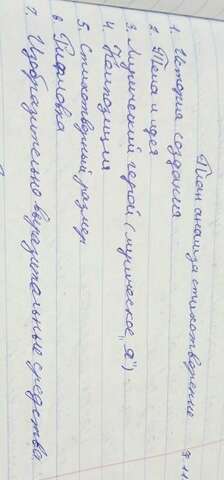 План анализа стихотворение
1. История создания
2. Тема и идея
3. Лирический герой (лирическое „Я")
4. Композиция
5. Стихотворный размер
6. Рифмовка
7. Изобразительно выразительные средства.